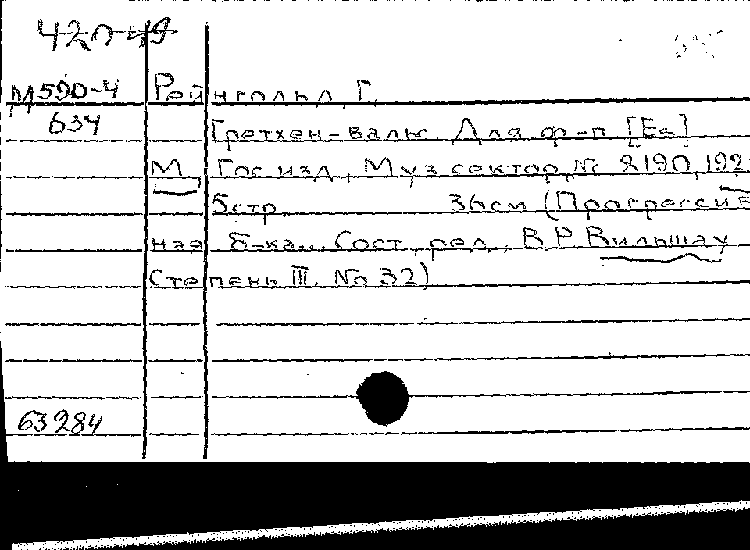 420-49
М590-4 Рейнгольд, Г.
634 Гретхен-вальс. Для ф-п. [Es]
М., Гос. изд., Муз. сектор, № 2190, 192
5 стр. 36 см (Прогрессив
ная б-ка... Сост., ред., В.Р. Вильшау
Степень III. No 32)
63284